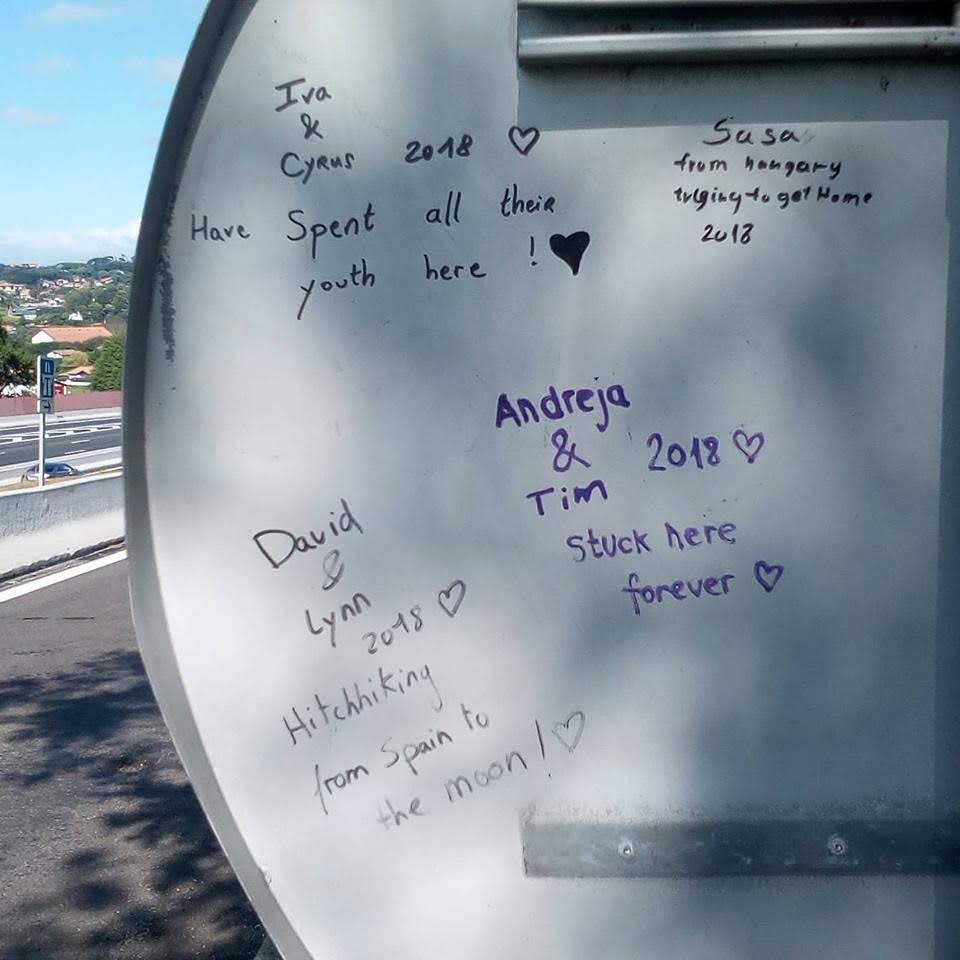 Iva
&
Cyrus 2018 ♡
Have Spent all their
youth here ! ♥
Sasa
from hungary
trying to get Home
2018
Andreja
& 2018 ♡
Tim
Stuck here
forever ♡
David
&
Lynn
2018 ♡
Hitchhiking
from Spain to
the moon! ♡